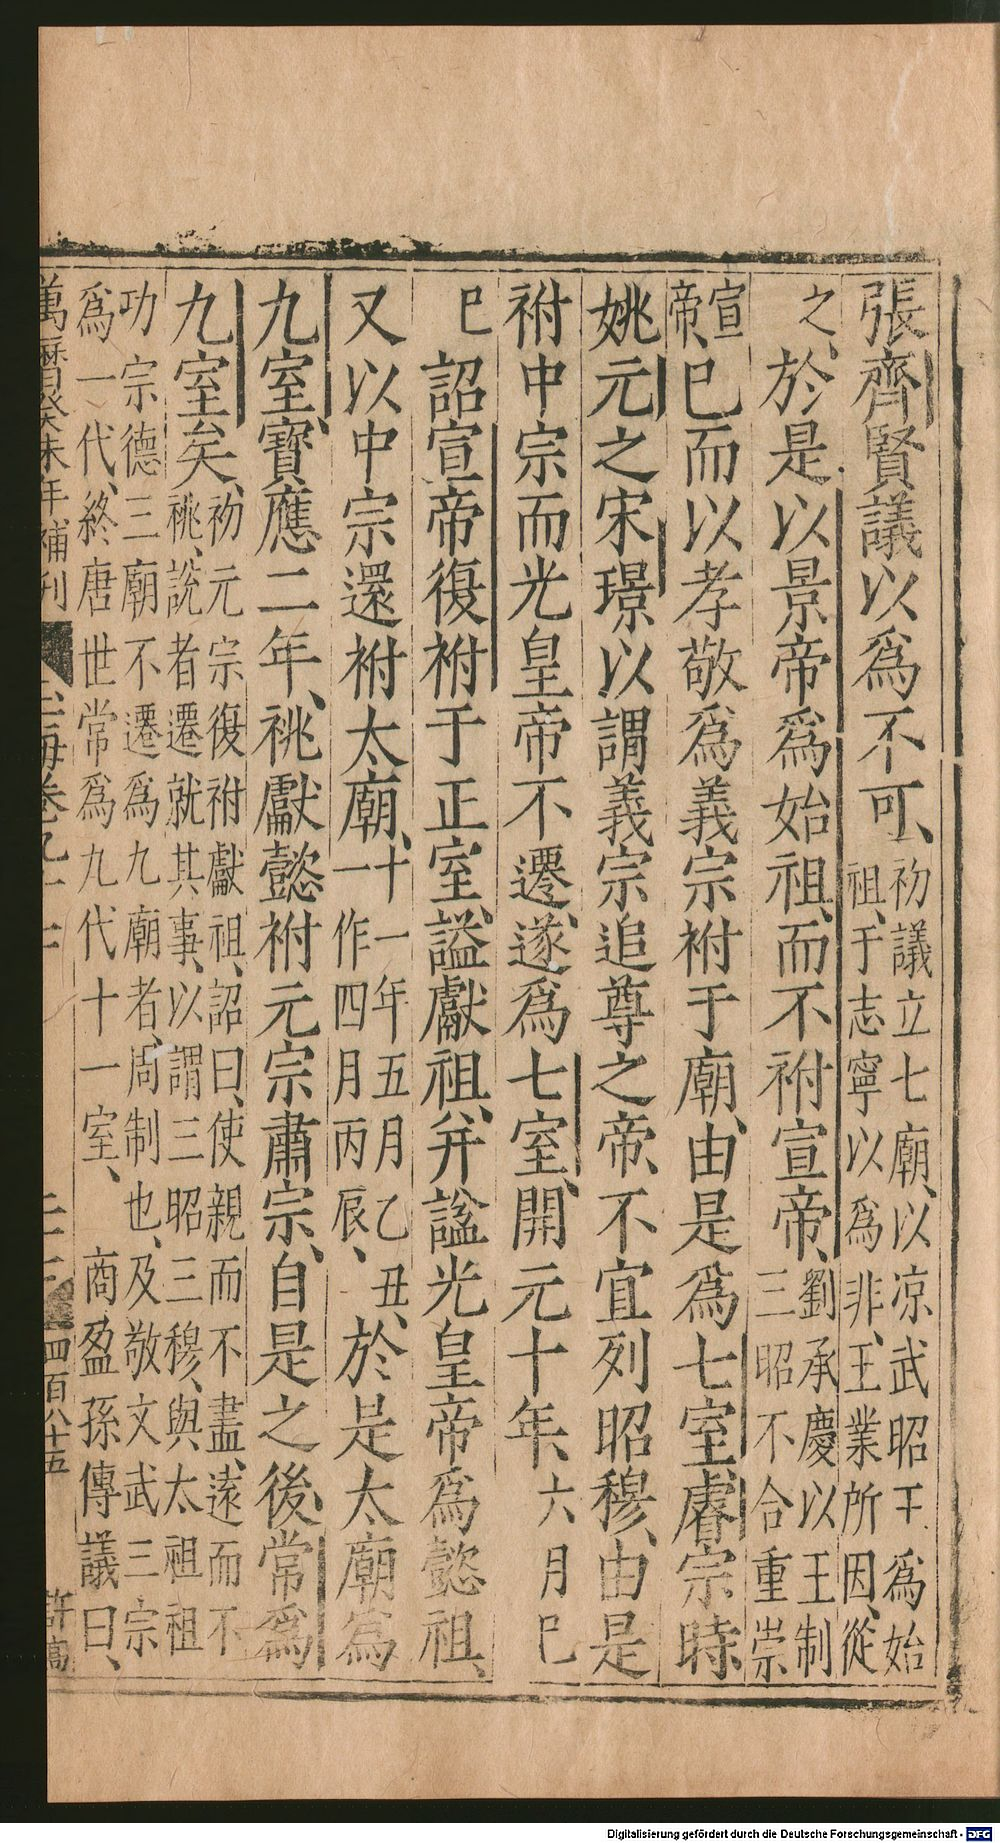 張齊賢議以爲不可、初議立七廟、以凉武昭王爲始
祖、于志寧以爲非、王業所因、從
之、於是以景帝爲始祖、而不祔宣帝、劉承慶以王制
三昭不合重崇
宣
帝、已而以孝敬爲義宗祔于廟、由是爲七室、睿宗時
姚元之宋璟以謂義宗追尊之帝、不宜列昭穆、由是
祔中宗而光皇帝不遷、遂爲七室、開元十年、六月巳
巳詔宣帝復祔于正室、謚獻祖、并謚光皇帝爲懿祖、
又以中宗還祔太廟、十一年五月乙丑、
一作四月丙辰、
於是太廟爲
九室、寶應二年、祧獻懿祔元宗肅宗、自是之後、常爲
九室矣、初元宗復祔獻祖、詔曰、使親而不盡、遠而不
祧、說者遷就其事、以謂三昭三穆、與太祖祖
功宗德三廟不遷爲九廟者、周制也、及敬文武三宗
爲一代、終唐世常爲九代十一室、商盈孫傳議曰、
萬曆癸未年補刊
玉海卷九十
四百八十五
許高
Digitalisierung gefördert durch die Deutsche Forschungsgemeinschaft - DFG